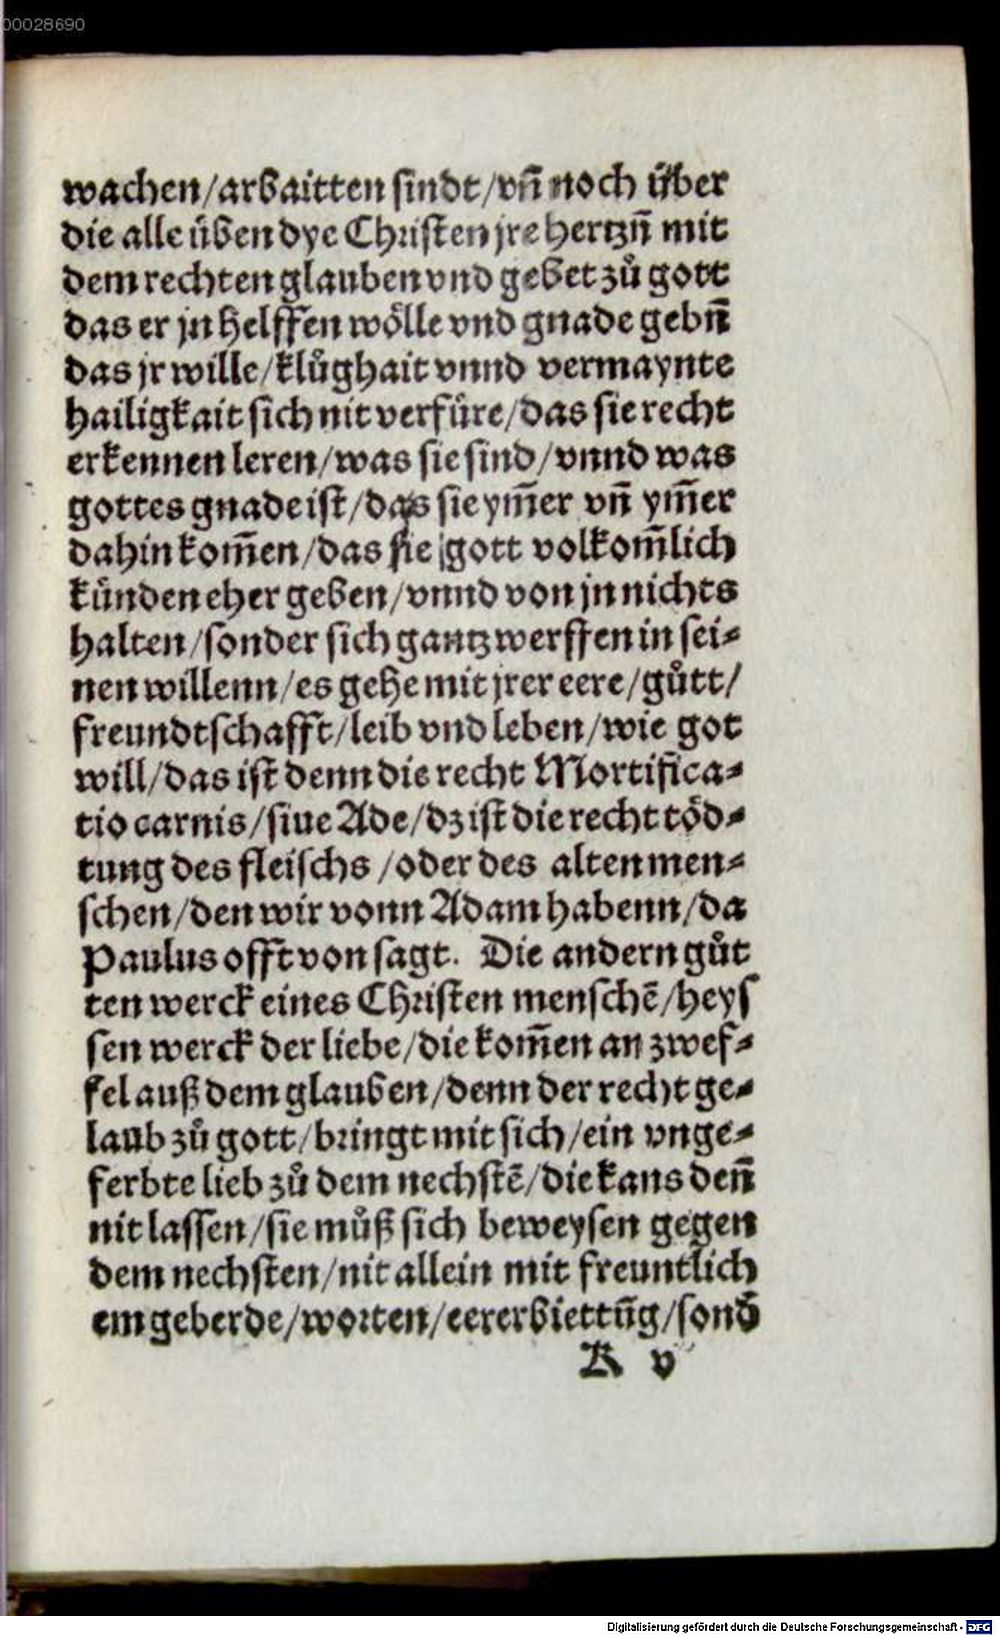 00028690
wachen/arbaitten sindt/vñ noch über
die alle üben dye Christen jre hertzñ mit
dem rechten glauben vnd gebet zů gott
das er jn helffen wölle vnd gnade gebñ
das jr wille/klůghait vnnd vermaynte
hailigkait sich nit verfüre/das sie recht
erkennen leren/was sie sind/vnnd was
gottes gnade ist/das sie ym̃er vñ ym̃er
dahin kom̃en/das sie gott volkom̃lich
künden eher geben/vnnd von jn nichts
halten/sonder sich gantz werffen in sei⸗
nen willenn/es gehe mit jrer eere/gůtt/
freundtschafft/leib vnd leben/wie got
will/das ist denn die recht Mortifica⸗
tio carnis/siue Ade/dz ist die recht töd⸗
tung des fleischs/oder des alten men⸗
schen/den wir vonn Adam habenn/da
Paulus offt von sagt. Die andern gůt
ten werck eines Christen menschẽ/heys
sen werck der liebe/die kom̃en an zwef⸗
fel auß dem glauben/denn der recht ge⸗
laub zů gott/bringt mit sich/ein vnge⸗
ferbte lieb zů dem nechstẽ/die kans deñ
nit lassen/sie můß sich beweysen gegen
dem nechsten/nit allein mit freuntlich
em geberde/worten/eererbiettũg/sond̃
K v
Digitalisierung gefördert durch die Deutsche Forschungsgemeinschaft - DFG